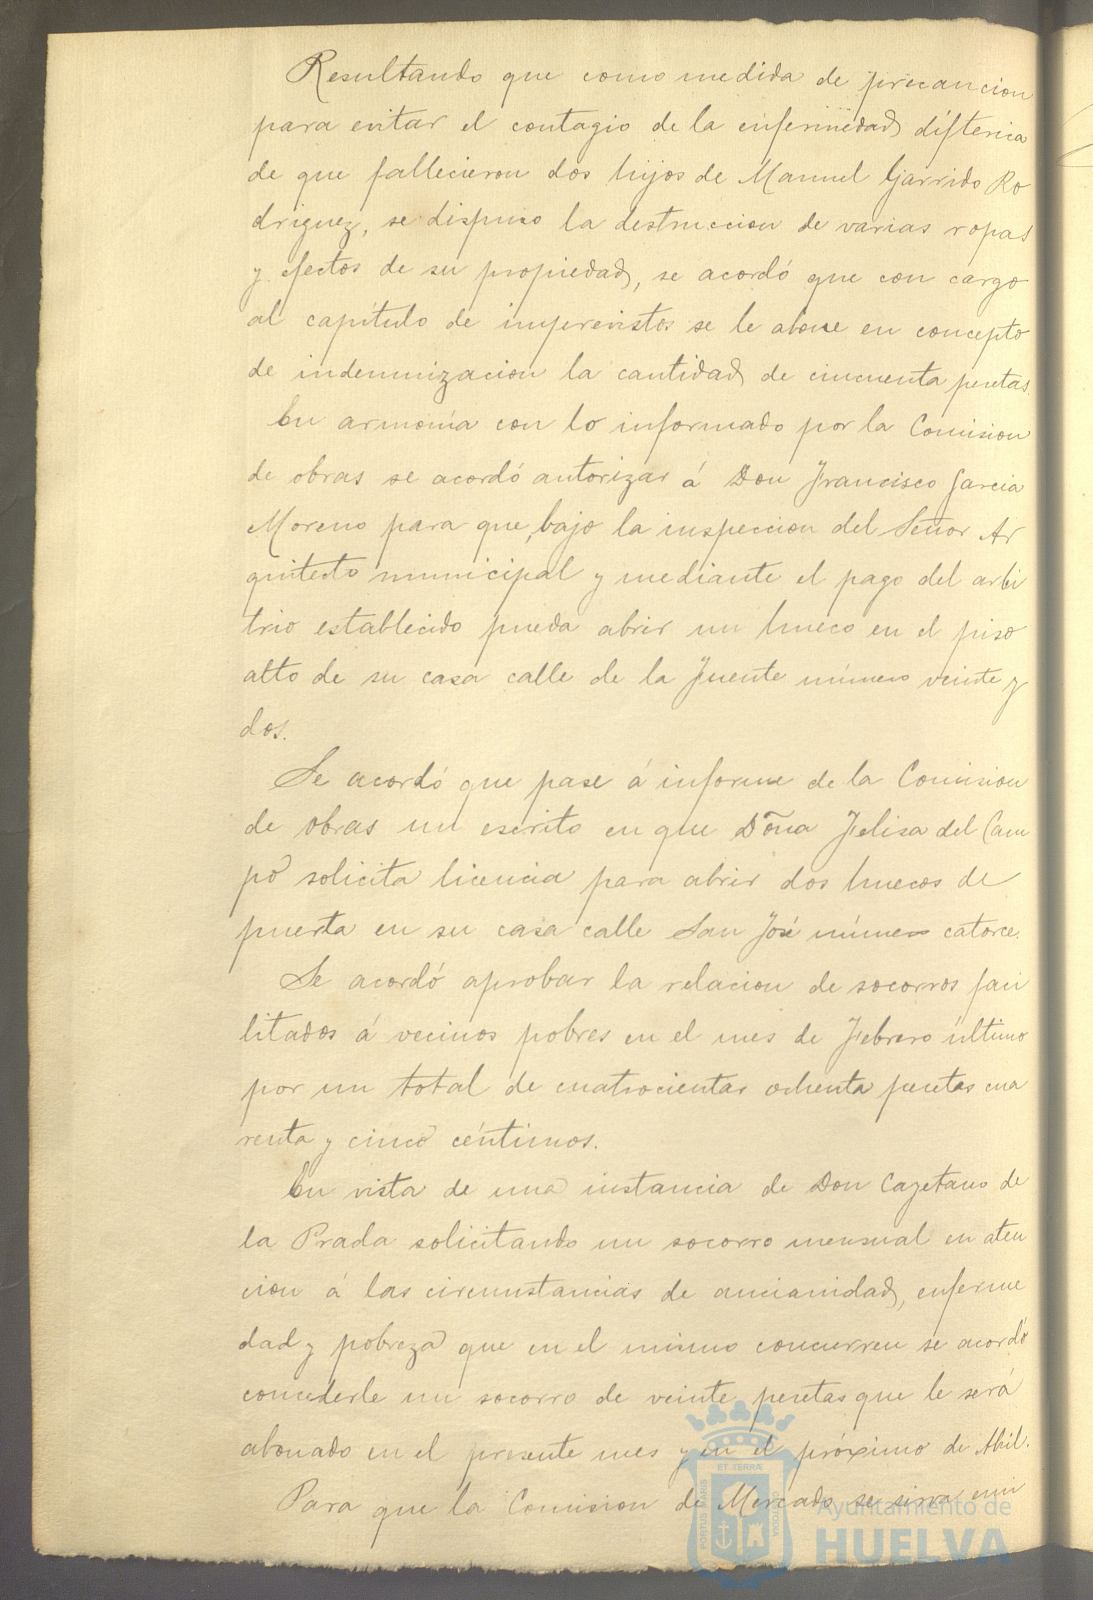 Resultando que como medida de precaucion
para evitar el contagio de la enfermedad diftérica
de que fallecieron dos hijos de Manuel Garrido Ro
driguez, se dispuso la destruccion de varias ropas
y efectos de su propiedad, se acordó que con cargo
al capítulo de imprevistos se le abone en concepto
de indemnizacion la cantidad de cincuenta pesetas.
En armonía con lo informado por la Comision
de obras se acordó autorizar á Don Francisco Garcia
Moreno para que, bajo la inspeccion del Señor Ar
quitecto municipal y mediante el pago del arbi
trio establecido pueda abrir un hueco en el piso
alto de su casa calle de la Fuente número veinte y
dos.
Se acordó que pase á informe de la Comision
de obras un escrito en que Doña Felisa del Cam
po solicita licencia para abrir dos huecos de
puerta en su casa calle San José número catorce.
Se acordó aprobar la relacion de socorros faci
litados á vecinos pobres en el mes de Febrero último
por un total de cuatrocientas ochenta pesetas cua
renta y cinco céntimos.
En vista de una instancia de Don Cayetano de
la Prada solicitando un socorro mensual en aten
cion á las circunstancias de ancianidad, enferme
dad y pobreza que en el mismo concurren se acordó
concederle un socorro de veinte pesetas que le será
abonado en el presente mes y en el próximo de Abril.
Para que la Comision de Mercado se sirva emi
PORTUS MARIS ET TERRÆ CUSTODIA
Ayuntamiento de
HUELVA